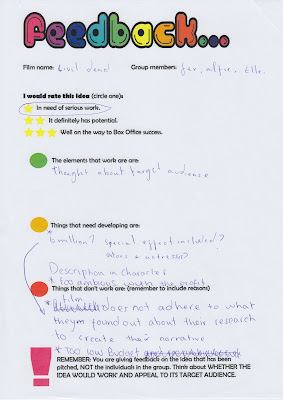 Feedback...
Film name: Civil dead Group members: Jex, Alfie, Elle.
I would rate this idea (circle one):
In need of serious work.
It definitely has potential.
Well on the way to Box Office success.
The elements that work are:
thought about target audience
Things that need developing are:
6 million? special effect included?
actors + actresses?
Description in character
* too ambious with the profit
Things that don't work are: (remember to include reasons)
film
does not adhere to what
they found out about their research
to create their narrative
* Too low Budget
REMEMBER: You are giving feedback on the idea that has been
pitched, NOT the individuals in the group. Think about WHETHER THE
IDEA WOULD 'WORK' AND APPEAL TO ITS TARGET AUDIENCE.